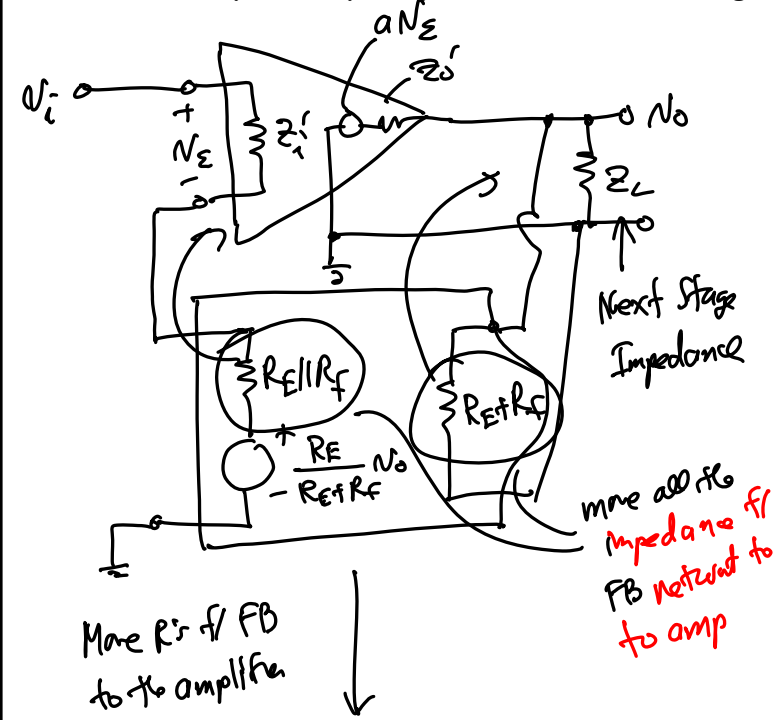 aVε
Zo'
Vi
+
Vε
-
Zi'
Vo
ZL
Next Stage
Impedance
RE||Rf
RE+Rf
+
-
RE
RE+Rf
Vo
move all the
impedance f/
FB network to
to amp
Move R's f/ FB
to the amplifier